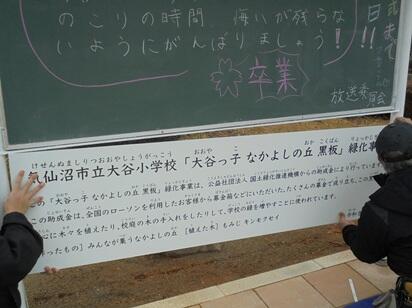 のこりの時間 悔いが残らな
いようにがんばりましょう!!
卒業
放送委員会
けせんぬましりつおおやしょうがっこう おおや こ おか こくばん りょっか
気仙沼市立大谷小学校「大谷っ子 なかよしの丘 黒板」緑化事
この「大谷っ子 なかよしの丘 黒板」緑化事業は、公益社団法人 国土緑化推進機構からの助成金により行っています。
この助成金は、全国のローソンを利用したお客様から募金箱などにいただいた、たくさんの募金で成り立ち、この里
心に木々を植えたり、校庭の木の手入れをしたりして、学校の緑を増やすことに使われています。
作ったもの］みんなが集うなかよしの丘 ［植えた木］もみじ キンモクセイ